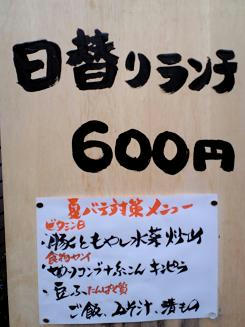 日替りランチ
600円
夏バテ対策メニュー
ビタミンB
・豚ともやし水菜炒め
食物センイ
・切りコンブ糸こんキンピラ
・豆ふ たんぱく質
・ご飯、みそ汁、漬もの